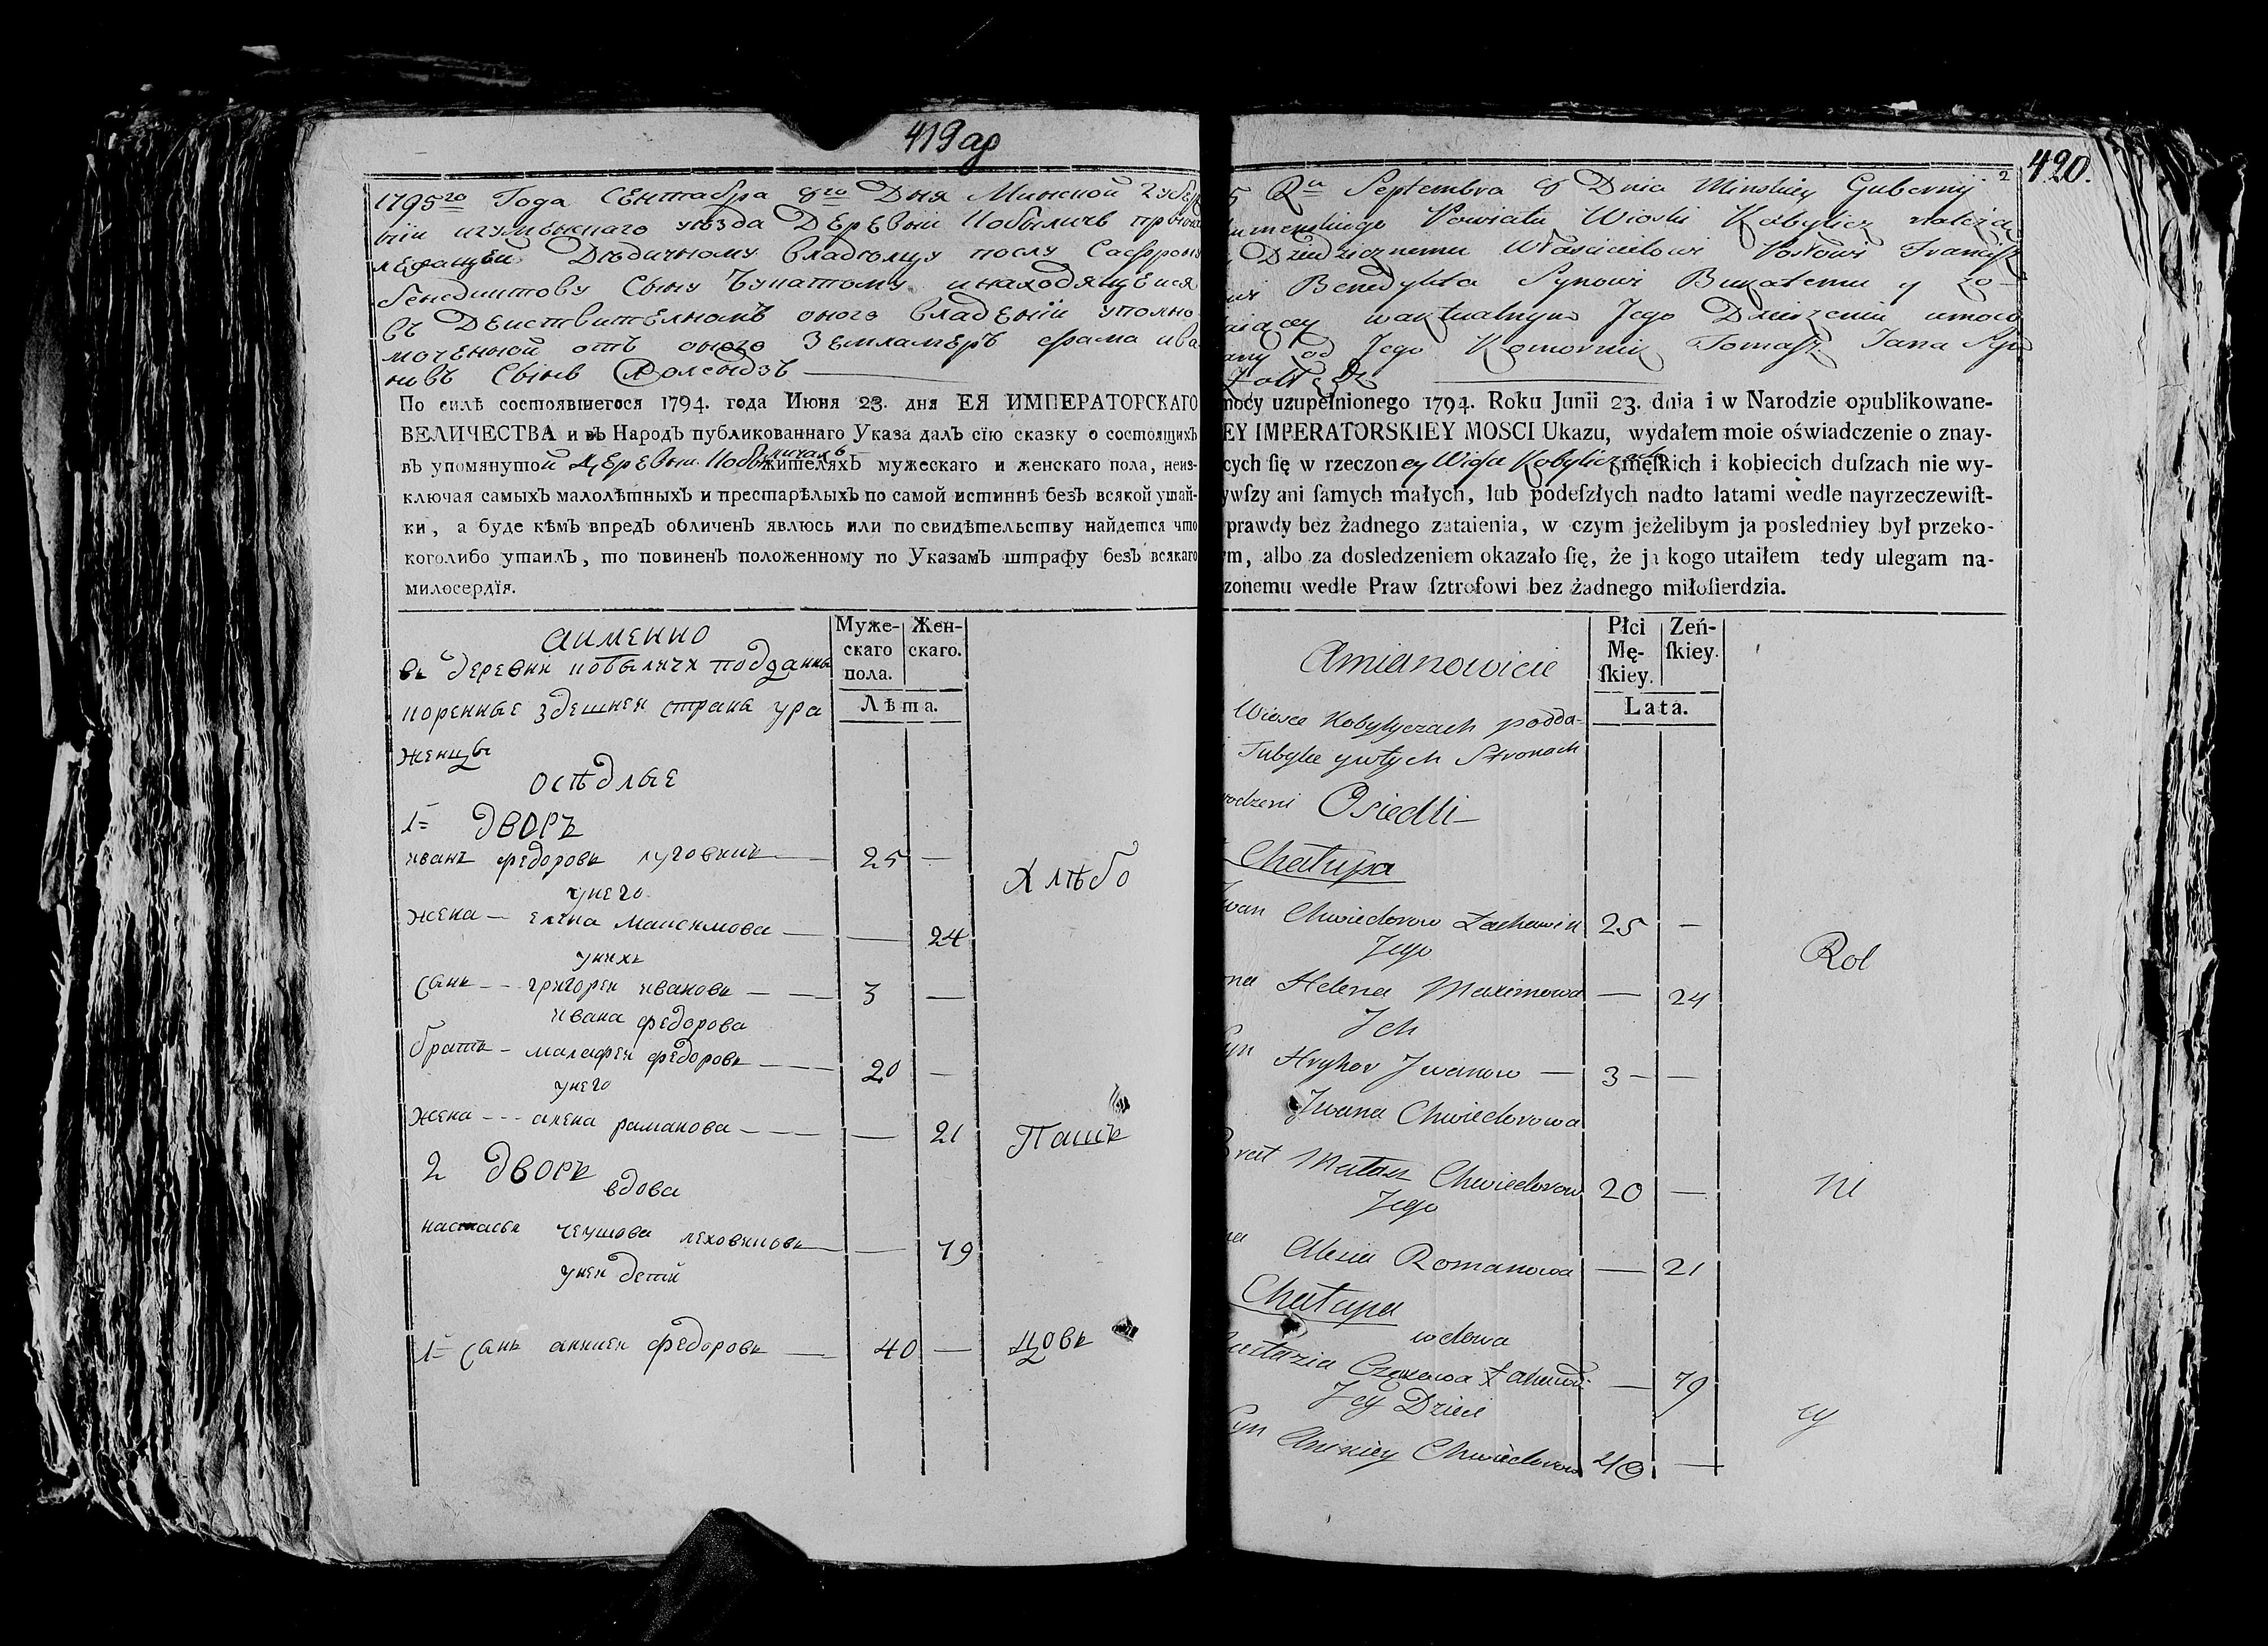 419 ар
1795го Года Сентабра 8го Дня Минской Губер
нїи игуменскаго уезда Деревни Кобыличъ прына
лежащей Дѣдичному владельцу послу
бенедиктову Сыну Букатому инаходящейся
въ Действителномъ оного владенїи уполно
моченной отъ оного Землемеръ фама ива
новъ Сынъ
По силѣ состоявшегося 1794. года Июня 23. дня ЕЯ ИМПЕРАТОРСКАГО
ВЕЛИЧЕСТВА и въ Народъ публикованнаго Указа далъ сїю сказку о состоящихъ
въ упомянутой Деревни Кобыличахъ жителяхъ мужескаго и женскаго пола, неиз-
ключая самыхъ малолѣтныхъ и престарѣлыхъ по самой истиннѣ безъ всякой утай-
ки, а буде кѣмъ впредь обличенъ явлюсь или по свидѣтельству найдется что
коголибо утаилъ, то повиненъ положенному по Указамъ штрафу безъ всякаго
милосердїя.
аименно
въ деревни кобыличх подданны
коренные здешней страны уро
женцы
осѣдлые
Муже-
скаго
пола.
Жен-
скаго.
Лѣта.
1= дворъ
иванъ федоровъ луговник — 25 —
унего
жена — елена максимова — — 24
унихъ
сынъ — григорей ивановъ — 3 —
ивана федорова
братъ — малафеи федоровъ — 20 —
унего
жена — алена раманова — — 21
2 дворъ
вдова
настасья леховикова — — 79
уней детй
1= сынъ аникеи федоровъ — 40 —
Хлѣбо
Паш
цовъ
420.
2
5 Rn Septembra 8 Dnia Minskiey Gubernij
humenskiego Powiatu Wioski Kobylicz należą
Dziedzicznemu Właścicielowi Posłowi Francisz
wi Benedykta Synowi Bukatemu y zo-
aiącey waktualnym Jego Dzierzeniu umoco
any od Jego Komornik Tomasz Jana Syn
nocy uzupełnionego 1794. Roku Junii 23. dnia i w Narodzie opublikowane-
EY IMPERATORSKIEY MOSCI Ukazu, wydałem moie oświadczenie o znay-
cych ſię w rzeczoney Wiosce Kobyliczach męſkich i kobiecich duſzach nie wy-
ywſzy ani ſamych małych, lub podeſzłych nadto latami wedle nayrzeczewiſt-
prawdy bez żadnego zataienia, w czym jeżelibym ja posledniey był przeko-
ym, albo za dosledzeniem okazało ſię, że ja kogo utaiłem tedy ulegam na-
zonemu wedle Praw ſztrofowi bez żadnego miłoſierdzia.
Amianowicie
Wiosce Kobyłyczach podda-
Tubylce ywtych Stronach
rodzeni Osiedli
Płci
Mę-
ſkiey.
Zeń-
ſkiey.
Lata.
Chałupa
Iwan Chwiedorow Lachowik 25 —
Jego
ona Helena Maximowa — 24
Jch
Syn Hryhor Jwanow — 3 — —
Jwana Chwiedorowa
Brat Małasz Chwiedorow 20 —
Jego
na Alesia Romanowa — 21
Chałupa
wdowa
astazia — 79
Jey Dzieci
Syn Anikiey Chwiedorow 40 —
Rol
ni
cy